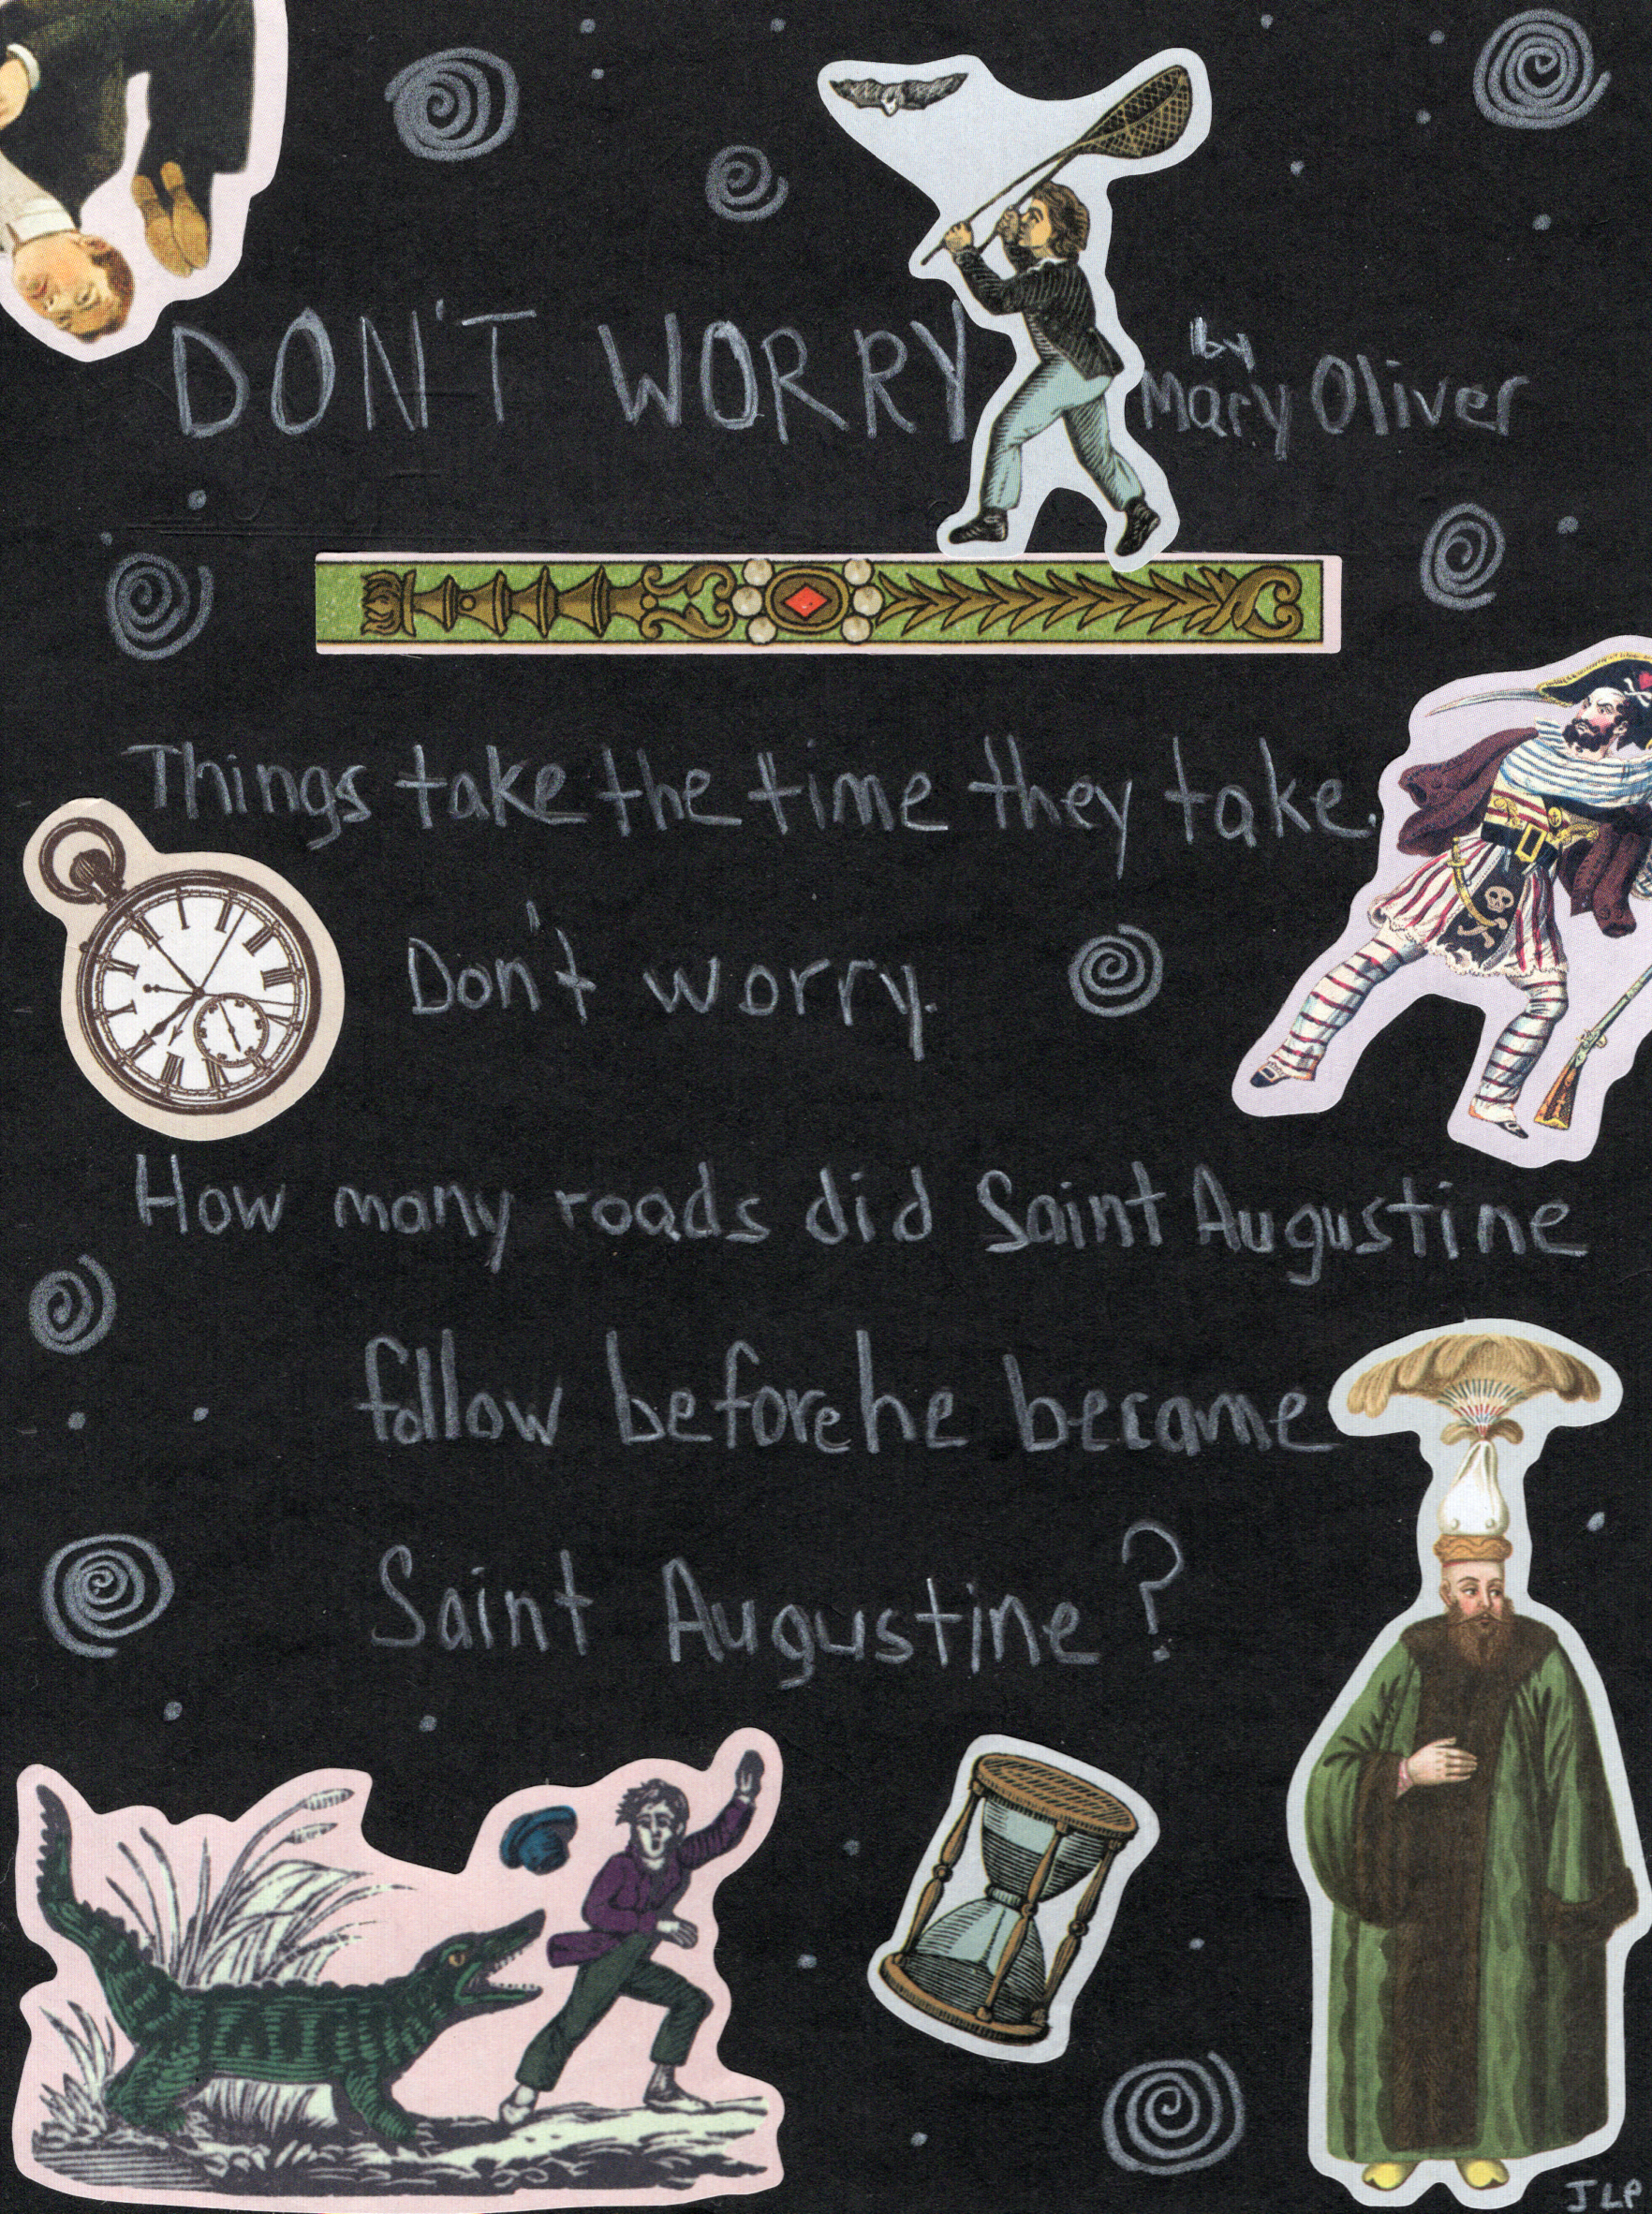 DON'T WORRY by Mary Oliver
Things take the time they take.
Don't worry.
How many roads did Saint Augustine
follow before he became
Saint Augustine?
JLP